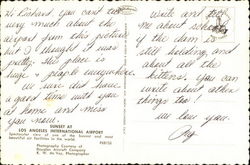 Hi Barbara, You can't tell
very much about the
airport from this picture
but I thought it was
pretty. This place is
huge & people everywhere.
We sure did have
a good time with you
at home and miss
you now.
SUNSET AT
LOS ANGELES INTERNATIONAL AIRPORT
Spectacular view of one of the busiest and most
beautiful air facilities in the world.
Photography Courtesy of
Douglas Aircraft Company
Write and tell
me about whether
the dam is
still holding, and
about all the
kittens. You can
write about other
things too!
We love you.